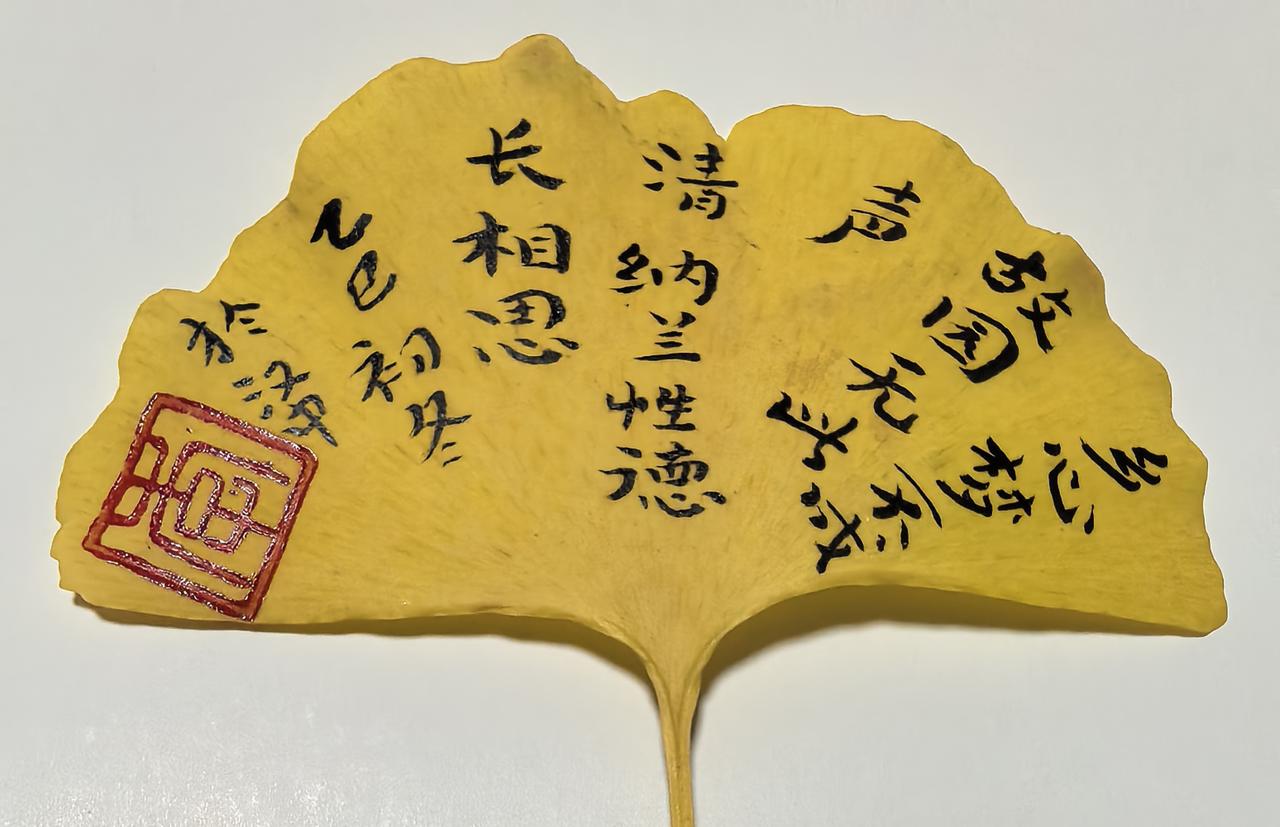 乡心梦不成
故园无此
声
清纳兰性德
长相思
乙巳初冬
於